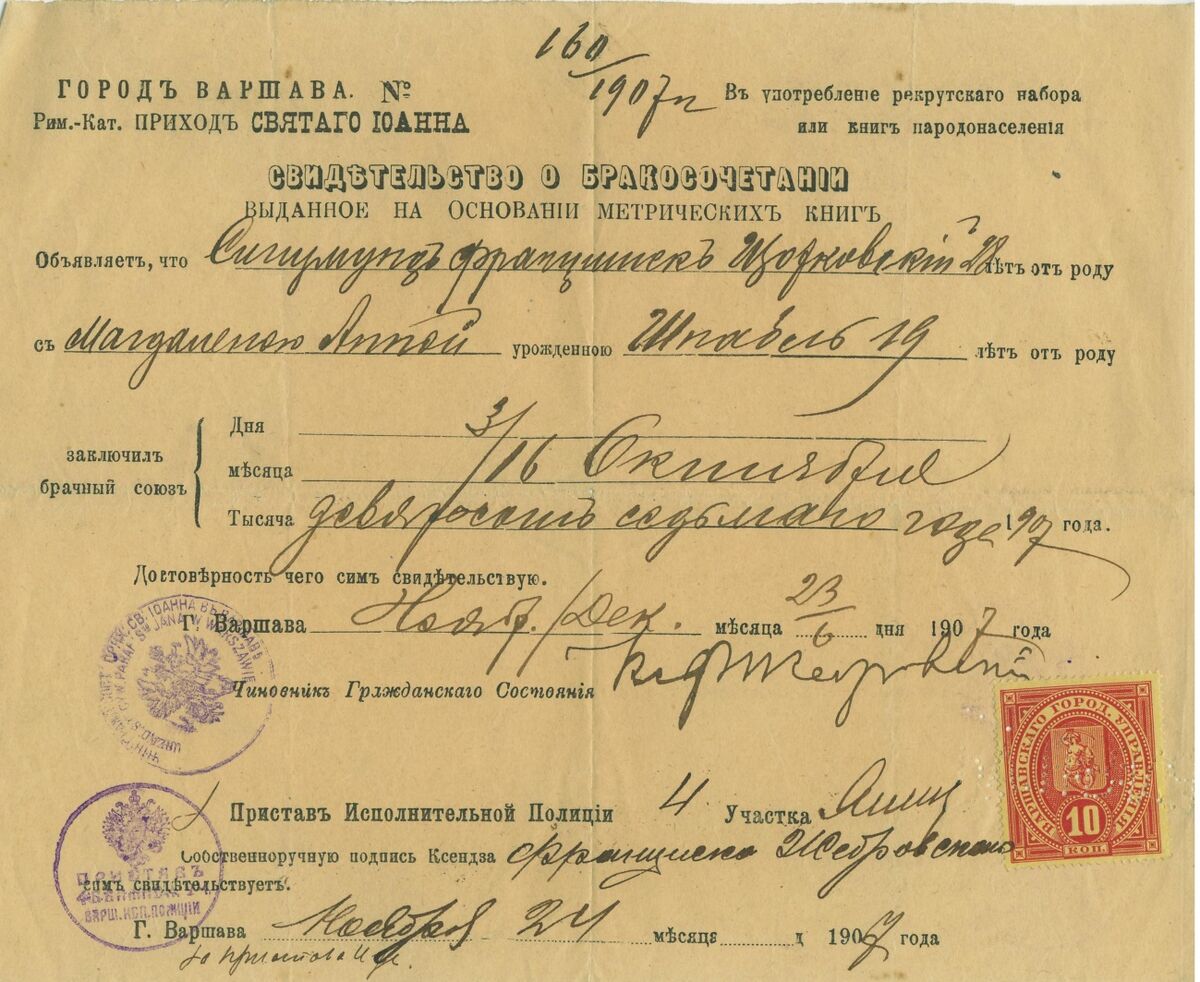 160/1907 г.
ГОРОДЪ ВАРШАВА. №
Рим.-Кат. ПРИХОДЪ СВЯТАГО ІОАННА
Въ употребленіе рекрутскаго набора
или книгъ народонаселенія
СВИДѢТЕЛЬСТВО О БРАКОСОЧЕТАНІИ
ВЫДАННОЕ НА ОСНОВАНІИ МЕТРИЧЕСКИХЪ КНИГЪ
Объявляетъ, что Сигизмундъ Францишекъ 22 лѣтъ отъ роду
съ Магдаленою Анной урожденною 19 лѣтъ отъ роду
заключилъ
брачный союзъ
Дня 3/16
мѣсяца Октября
Тысяча девятьсотъ седьмаго года 1907 года.
Достовѣрность чего симъ свидѣтельствую.
Г. Варшава Нояб./Дек. мѣсяца 23/6 дня 1907 года
Чиновникъ Гражданскаго Состоянія
ВАРШАВСКАГО ГОРОД. УПРАВЛЕНІЯ
10
КОП.
Приставъ Исполнительной Полиціи 4 Участка
Собственноручную подпись Ксендза Франциска Жебровскаго
симъ свидѣтельствуетъ.
ПРИСТАВЪ
ВАРШ. ИСП. ПОЛИЦІИ
Г. Варшава Ноября 24 мѣсяца 1907 года